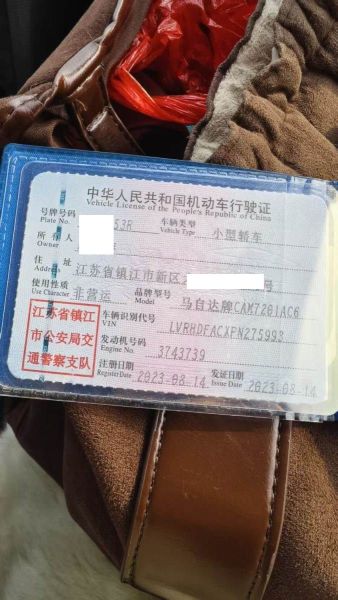 中华人民共和国机动车行驶证
Vehicle License of the People's Republic of China
号牌号码 53R 车辆类型 小型轿车
Plate No. Vehicle Type
所有人
Owner
住址 江苏省镇江市新区 号
Address
使用性质 非营运 品牌型号 马自达牌CAM7201AC6
Use Character Model
江苏省镇江市公安局交通警察支队
车辆识别代号 LVRHDFACXPN275993
VIN
发动机号码 3743739
Engine No.
注册日期 2023-08-14 发证日期 2023-08-14
Register Date Issue Date